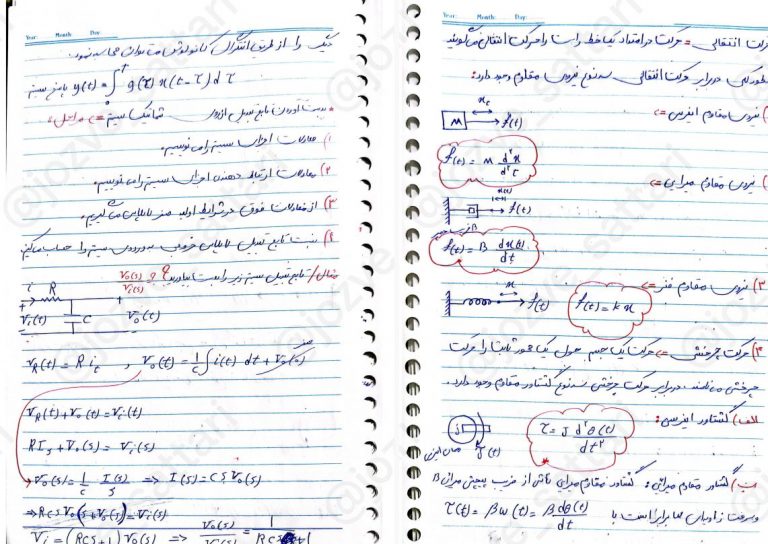 Year: Month: Day:
را از طریق انتگرال کانولوشن می توان محاسبه نمود.
پاسخ سیستم y(t) = ∫ g(τ) x(t-τ) dτ
بدست آوردن تابع تبدیل از روی شماتیک سیستم => مراحل:
۱) معادلات اجزاء سیستم را می نویسیم.
۲) معادلات ارتباط دهنده اجزاء سیستم را می نویسیم.
۳) از معادلات فوق در شرایط اولیه صفر لاپلاس می گیریم.
۴) نسبت تابع تبدیل لاپلاس خروجی به ورودی سیستم را حساب میکنیم
مثال/ تابع تبدیل سیستم زیر را بدست بیاورید Vo(s)/Vi(s) = ?
i R
Vi(t) C Vo(t)
VR(t) = R i , Vo(t) = 1/C ∫ i(t) dt + Vo(0) صفر
VR(t) + Vo(t) = Vi(t)
RI s + Vo(s) = Vi(s)
Vo(s) = 1/C I(s)/s => I(s) = CS Vo(s)
=> RCS Vo(s) + Vo(s) = Vi(s)
Vi = (RCS+1) Vo(s) => Vo(s)/Vi(s) = 1/RCS+1
Year: Month: Day:
حرکت انتقالی => حرکت در امتداد یک خط راست را حرکت انتقالی می گویند
بطور کلی در برابر حرکت انتقالی سه نوع نیروی مقاوم وجود دارد:
۱) نیروی مقاوم اینرسی =>
M f(t)
f(t) = M d²x/d²t
نیروی مقاوم میرایی =>
x(t)
f(t)
B
f(t) = B dx(t)/dt
۳) نیروی مقاوم فنر =>
x f(t) f(t) = kx
۲) حرکت چرخشی => حرکت یک جسم حول یک محور ثابت را حرکت
چرخشی می نامند. در برابر حرکت چرخشی سه نوع گشتاور مقاوم وجود دارد.
الف) گشتاور اینرسی:
J τ(t) ممان اینرسی
τ = J d²θ(t)/dt²
ب) گشتاور مقاوم میرایی: گشتاور مقاوم میرایی ناشی از ضریب پیچشی میرایی B
و سرعت زاویه ای ω برابر است با τ(t) = Bω(t) = B dθ(t)/dt
@jozve_sattari